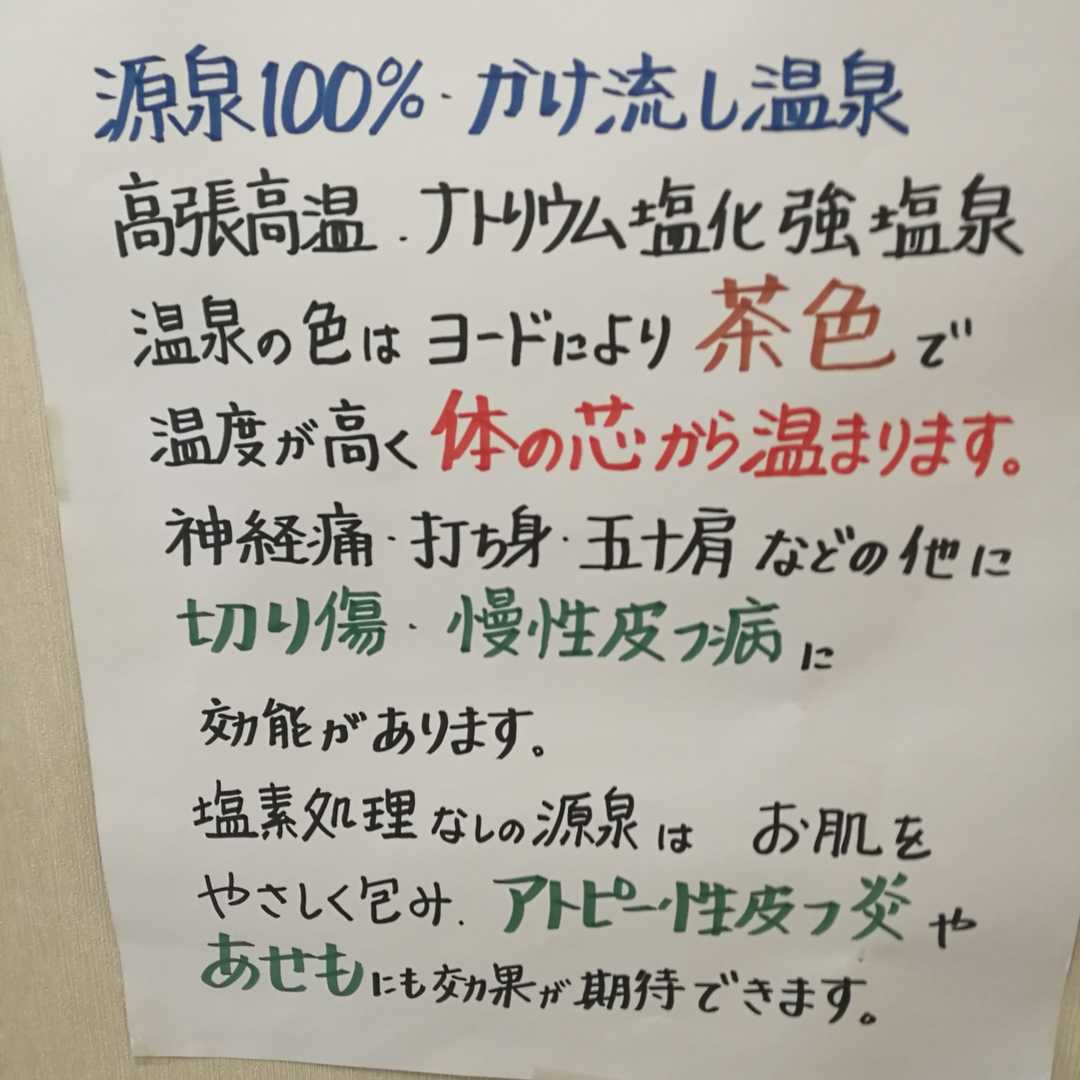 源泉100%・かけ流し温泉
高張高温.ナトリウム塩化強塩泉
温泉の色はヨードにより茶色で
温度が高く体の芯から温まります。
神経痛・打ち身・五十肩などの他に
切り傷・慢性皮フ病に
効能があります。
塩素処理なしの源泉は お肌を
やさしく包み.アトピー性皮フ炎や
あせもにも効果が期待できます。